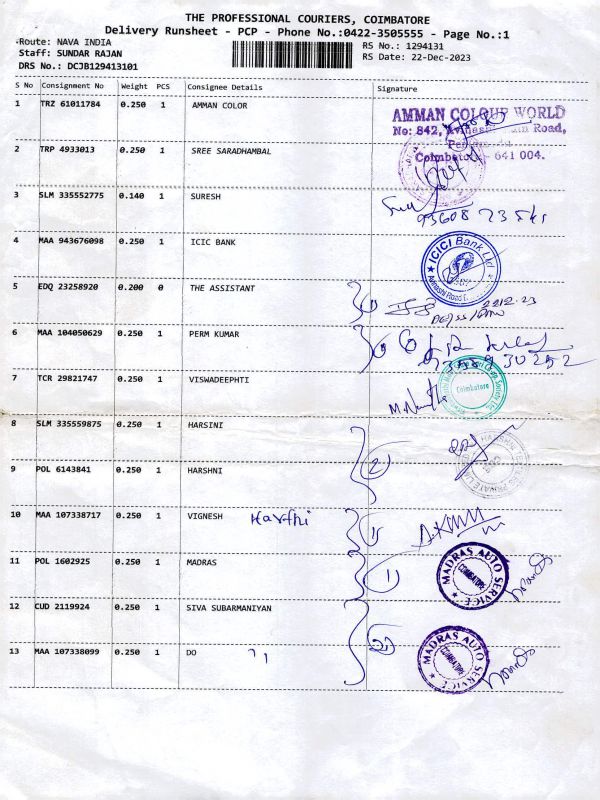 THE PROFESSIONAL COURIERS, COIMBATORE
Delivery Runsheet - PCP - Phone No.:0422-3505555 - Page No.:1
Route: NAVA INDIA
RS No.: 1294131
Staff: SUNDAR RAJAN
RS Date: 22-Dec-2023
DRS No.: DCJB129413101
S No Consignment No Weight PCS Consignee Details Signature
1 TRZ 61011784 0.250 1 AMMAN COLOR
AMMAN COLOUR WORLD
No: 842, Road,
Coimbatore 641 004.
2 TRP 4933013 0.250 1 SREE SARADHAMBAL
3 SLM 335552775 0.140 1 SURESH
4 MAA 943676098 0.250 1 ICIC BANK
ICICI Bank Ltd
5 EDQ 23258920 0.200 0 THE ASSISTANT
6 MAA 104050629 0.250 1 PERM KUMAR
7 TCR 29821747 0.250 1 VISWADEEPHTI
Coimbatore
8 SLM 335559875 0.250 1 HARSINI
9 POL 6143841 0.250 1 HARSHNI
2
10 MAA 107338717 0.250 1 VIGNESH
11 POL 1602925 0.250 1 MADRAS
1
MADRAS AUTO SERVICE
COIMBATORE
12 CUD 2119924 0.250 1 SIVA SUBARMANIYAN
13 MAA 107338099 0.250 1 DO
MADRAS AUTO SERVICE
COIMBATORE